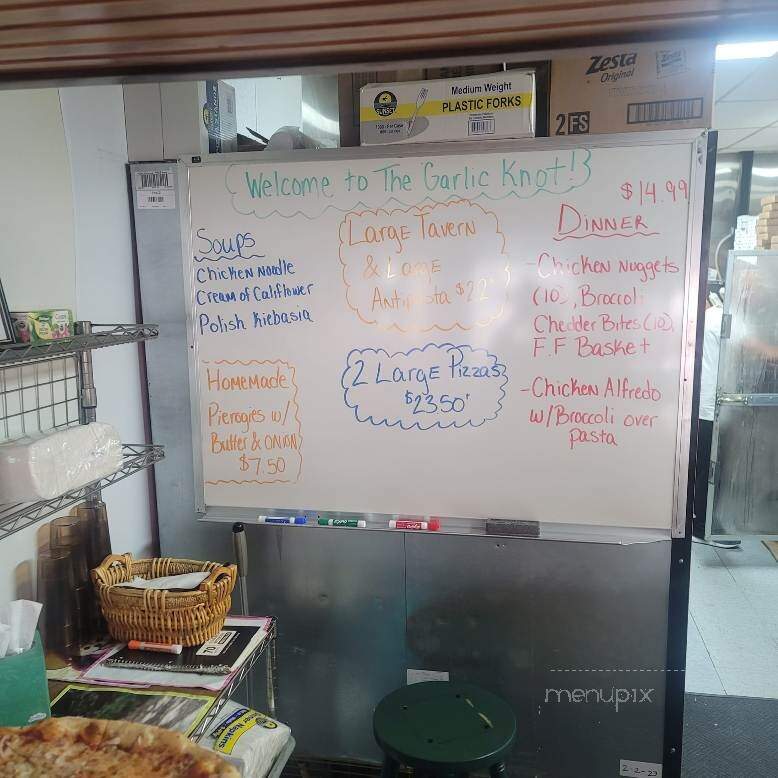 Zesta
Original
Medium Weight
PLASTIC FORKS
SUNSET
2FS
Welcome to The Garlic Knot!
$14.99
Soups
Chicken Noodle
Cream of Califlower
Polish Kiebasia
Large Tavern
& Large
Antipasta $22
DINNER
- Chicken Nuggets
(10), Broccoli
Chedder Bites (10),
F.F Basket
- Chicken Alfredo
w/Broccoli over
pasta
HOMEMADE
Pierogies w/
Butter & ONION
$7.50
2 Large Pizzas
$23.50
Dinner Napkins
menupix
2-2-23